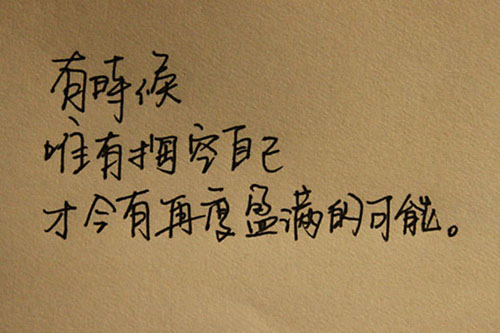 有時候
唯有掏空自己
才会有再度盈满的可能。